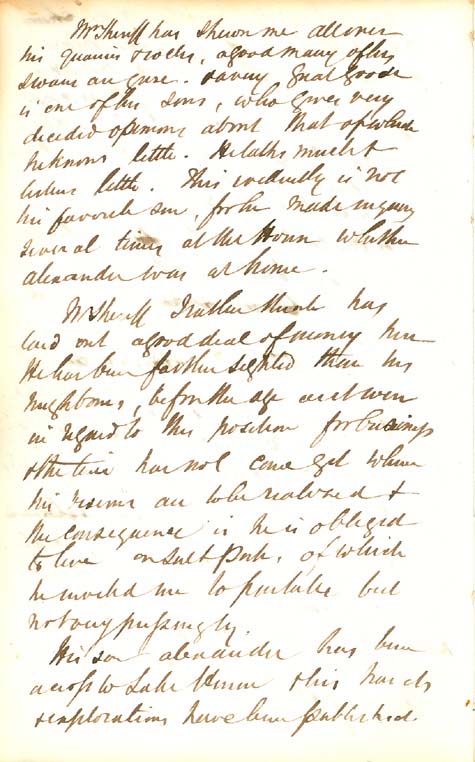 Mr Shirreff has shewn me all over
his quarries & rocks, a good many of his
swans are geese. & a very great goose
is one of his sons, who gives very
decided opinions about that of which
he knows little. He talks much &
listens little. This evidently is not
his favorite son, for he made inquiry
several times at the House whether
Alexander was at home.
Mr Shirreff I rather think has
laid out a good deal of money here
He has been farther sighted than his
neighbours, before the age as it were
in regard to this position for business
& the time has not come yet where
his visions are to be realized &
the consequence is he is obliged
to live on salt Pork, of which
he invited me to partake but
not very pressingly.
His son Alexander has been
across to Lake Huron & his
explorations have been published.